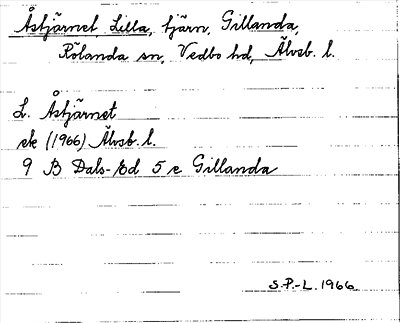 Åstjärnet Lilla, tjärn, Gillanda,
Rölanda sn, Vedbo hd, Älvsb. l.
L. Åstjärnet
ek (1966) Älvsb. l.
9 B Dals-Ed 5 e Gillanda
S.P.-L. 1966